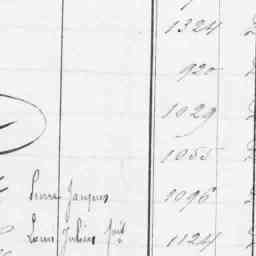 1324
920
1029
1055
Pierre Jacques 1096
Louis Julien 1124